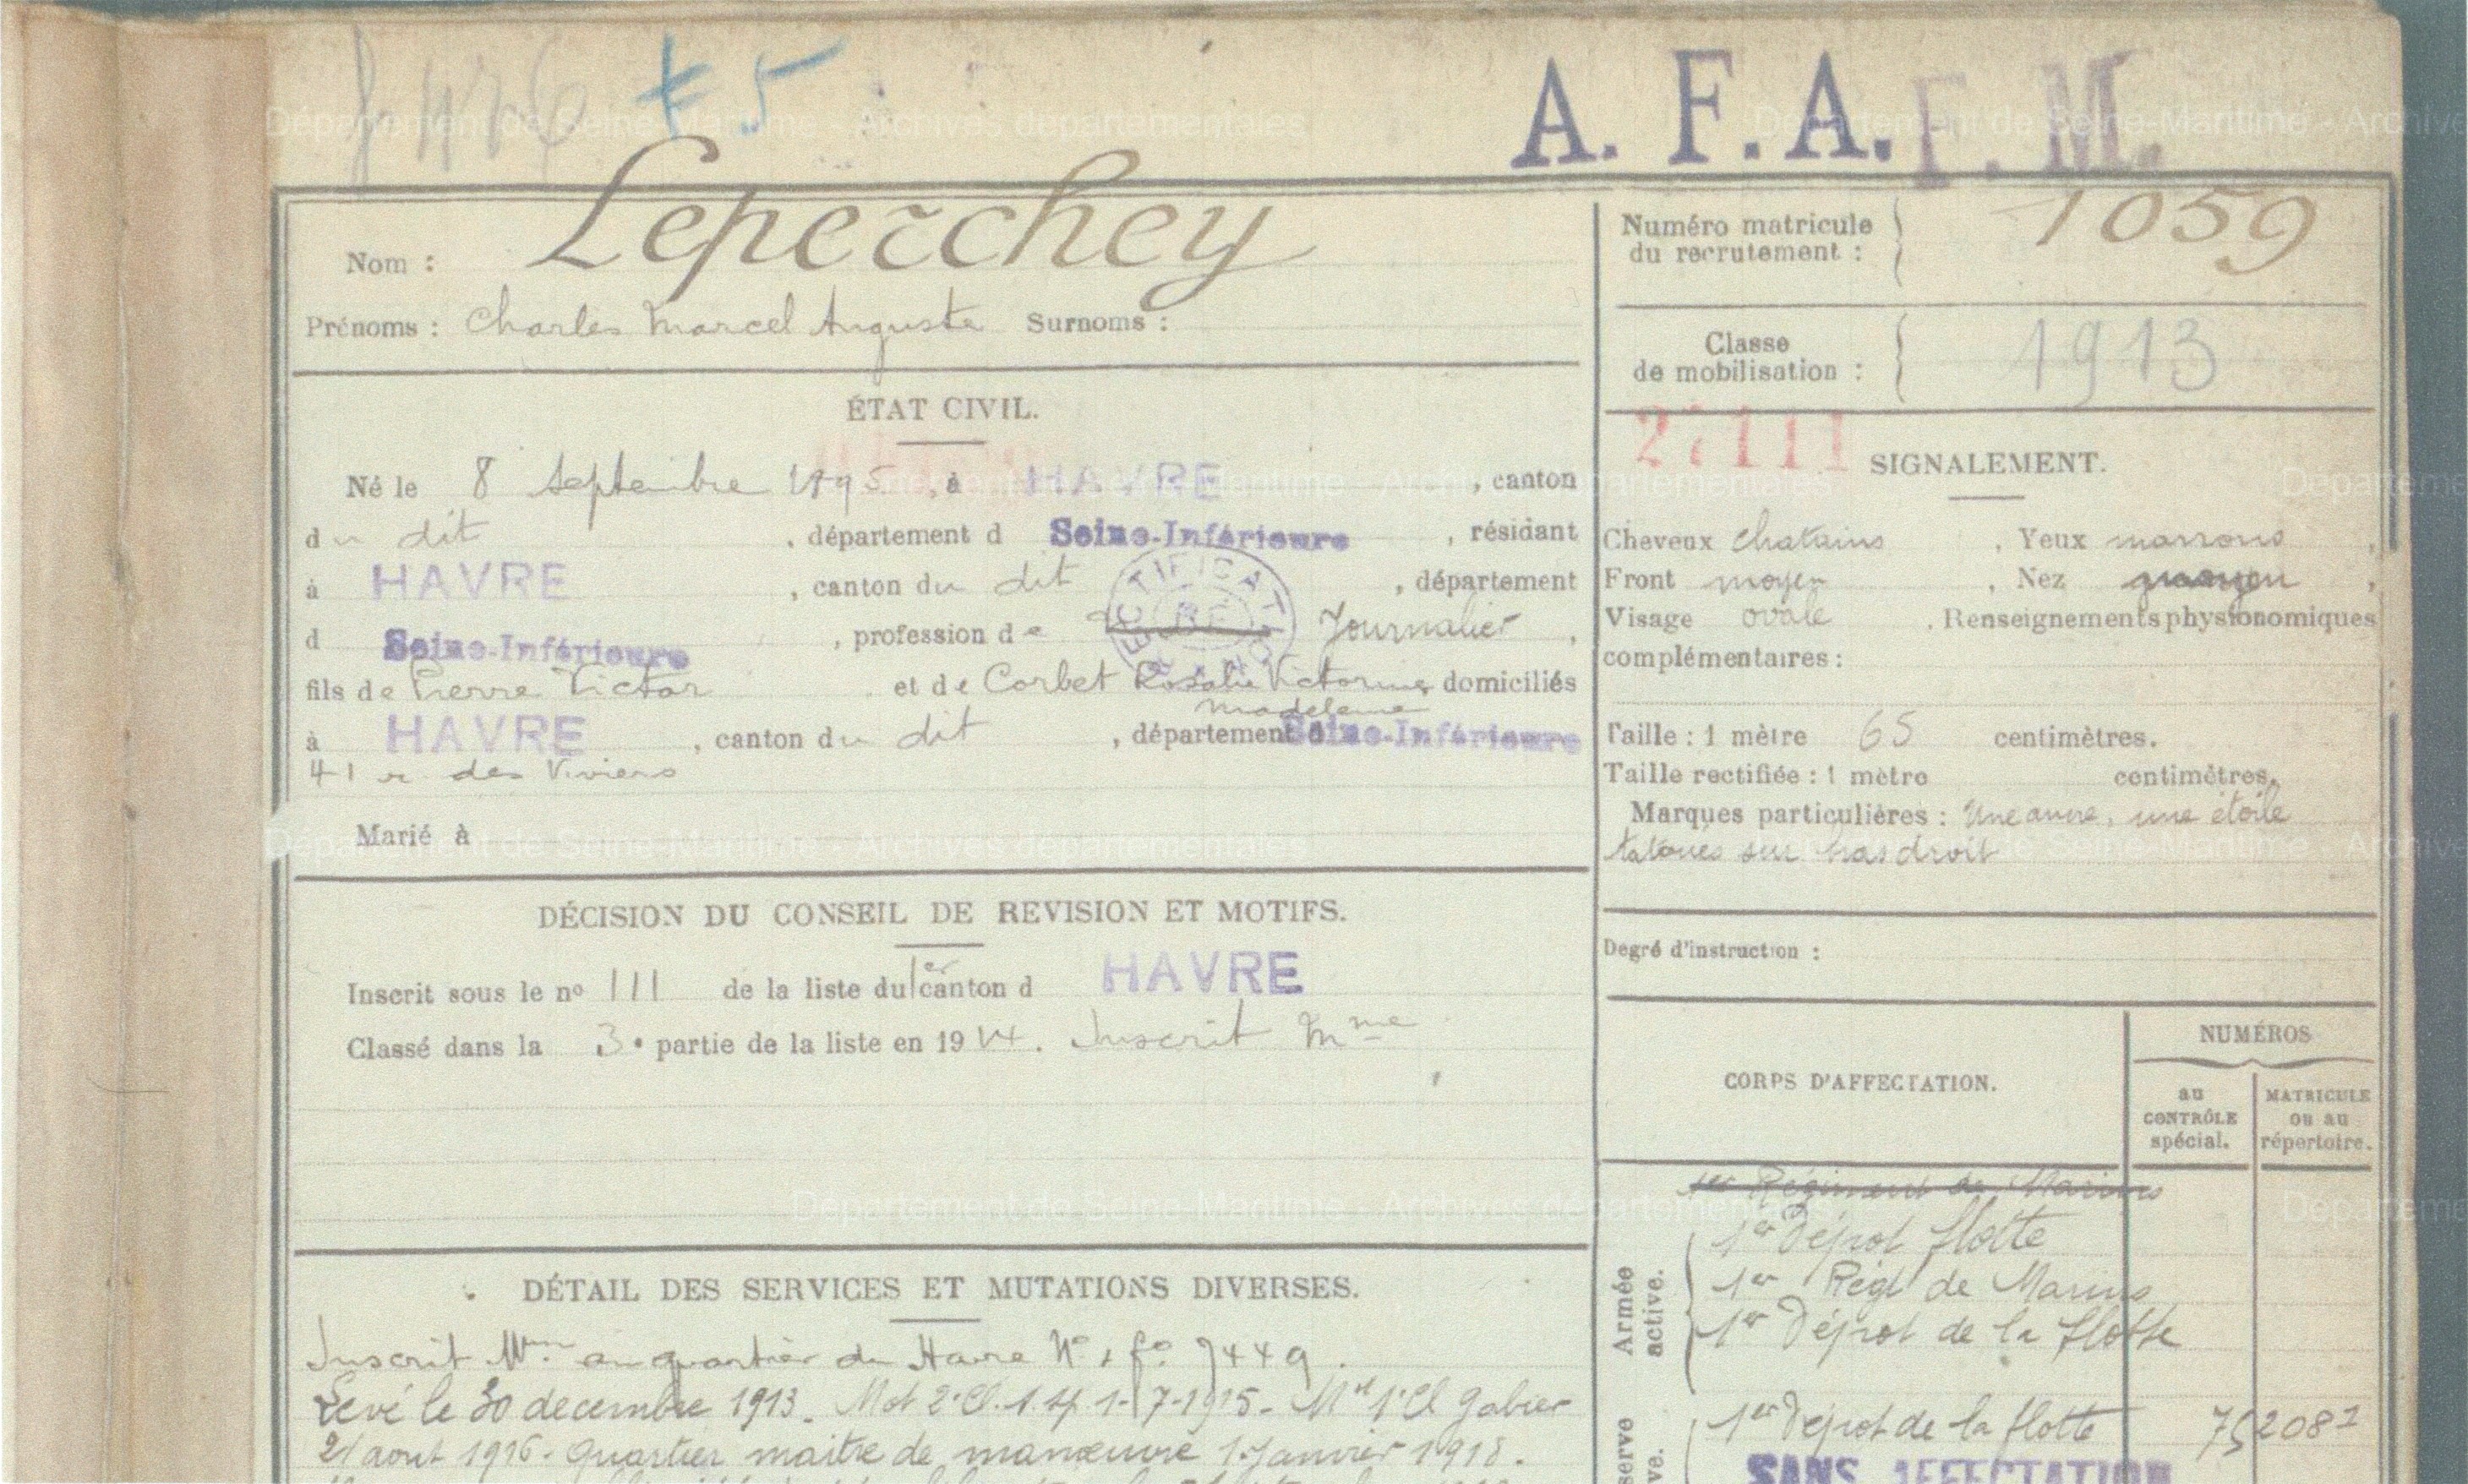 A. F. A. F. M.
Nom : Leperchey
Prénoms : Charles Marcel Auguste Surnoms :
ÉTAT CIVIL.
Né le 8 septembre 1895, à HAVRE, canton
du dit, département d Seine-Inférieure, résidant
à HAVRE, canton du dit, département
d Seine-Inférieure, profession de Journalier,
fils de Pierre Victor et de Corbet Rosalie Victorine domiciliés
madeleine
à HAVRE, canton du dit, département d Seine-Inférieure
41 r. des Viviers
Marié à
DÉCISION DU CONSEIL DE REVISION ET MOTIFS.
Inscrit sous le nº 111 de la liste du 1er canton d HAVRE
Classé dans la 3e partie de la liste en 1914. Inscrit Mme
DÉTAIL DES SERVICES ET MUTATIONS DIVERSES.
Inscrit Mme au quartier du Havre
Levé le 30 decembre 1913. Mot 2e Cl. 1-7-1915. Mt 1e Cl gabier
21 aout 1916. Quartier maitre de manœuvre 1 Janvier 1918.
Numéro matricule
du recrutement : 1059
Classe
de mobilisation : 1913
27111
SIGNALEMENT.
Cheveux chatains, Yeux marrons,
Front moyen, Nez moyen,
Visage ovale. Renseignements physionomiques
complémentaires :
Taille : 1 mètre 65 centimètres.
Taille rectifiée : 1 mètre centimètres.
Marques particulières : Une ancre, une étoile
tatoués sur bras droit
Degré d'instruction :
CORPS D'AFFECTATION.
NUMÉROS
au
CONTRÔLE
spécial.
MATRICULE
ou au
répertoire.
Armée
active.
1er Régiment de Marins
1er Dépot flotte
1er Régt de Marins
1er Dépot de la flotte
1er Dépot de la flotte
SANS AFFECTATION
Département de Seine-Maritime - Archives départementales